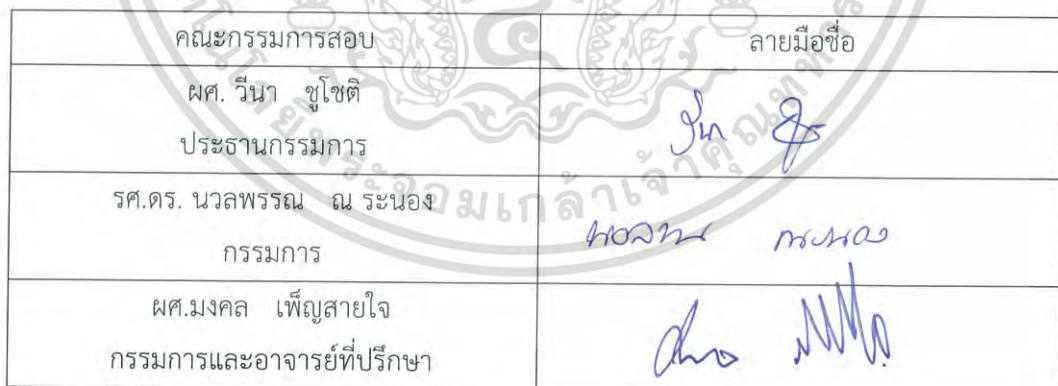 คณะกรรมการสอบ ลายมือชื่อ
ผศ. วีนา ชูโชติ
ประธานกรรมการ
รศ.ดร. นวลพรรณ ณ ระนอง
กรรมการ
ผศ.มงคล เพ็ญสายใจ
กรรมการและอาจารย์ที่ปรึกษา
พระจอมเกล้าเจ้าคุณทหาร